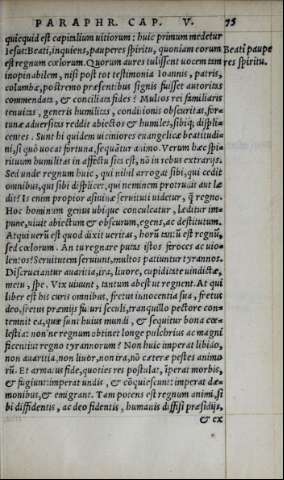 PARAPHR. CAP. V. 75
quicquid est capitalium uitiorum: huic primum medetur
Iesus: Beati, inquiens, pauperes spiritu, quoniam eorum
Beati paupe
est regnum cœlorum. Quorum aures tulissent uocem tam
res spiritu.
inopinabilem, nisi post tot testimonia Ioannis, patris,
columbæ, postremo præsentibus signis fuisset autoritas
commendata, & conciliata fides? Multos rei familiaris
tenuitas, generis humilitas, conditionis obscuritas, for-
tunæ aduersitas reddit abiectos & humiles, sibiq; displi-
centes. Sunt hi quidem uiciniores euangelicæ beatitudi
ni, si quò uocat fortuna, sequātur animo. Verum hæc spi-
rituum humilitas in affectu sita est, nō in rebus extrarijs.
Sed unde regnum huic, qui nihil arrogat sibi, qui cedit
omnibus, qui sibi displicet, qui neminem protrudit aut læ
dit? Is enim propior asininæ seruituti uidetur, q̄ regno.
Hoc hominum genus ubique conculcatur, læditur im-
pune, uiuit abiectum & obscurum, egens, ac destitutum.
Atqui uerū est quod dixit ueritas, horū tm̄ū est regnū,
sed cœlorum. An tu regnare putas istos feroces ac uio-
lentos? Seruitutem seruiunt, multos patiuntur tyrannos.
Discruciantur auaritia, ira, liuore, cupiditate uindictæ,
metu, spe. Vix uiuunt, tantum abest ut regnent. At qui
liber est his curis omnibus, fretus innocentia sua, fretus
deo, fretus præmijs futuri seculi, tranquillo pectore con-
temnit ea, quæ sunt huius mundi, & sequitur bona cœ-
lestia: nonne regnum obtinet longe pulchrius ac magni
ficentius regno tyrannorum? Non huic imperat libido,
non auaritia, non liuor, non ira, nō cæteræ pestes animo
rū. Et armatus fide, quoties res postulat, īperat morbis,
& fugiunt: imperat undis, & cōquiescunt: imperat dæ-
monibus, & emigrant. Tam potens est regnum animi, si
bi diffidentis, ac deo fidentis, humanis diffisi præsidijs,
& ex